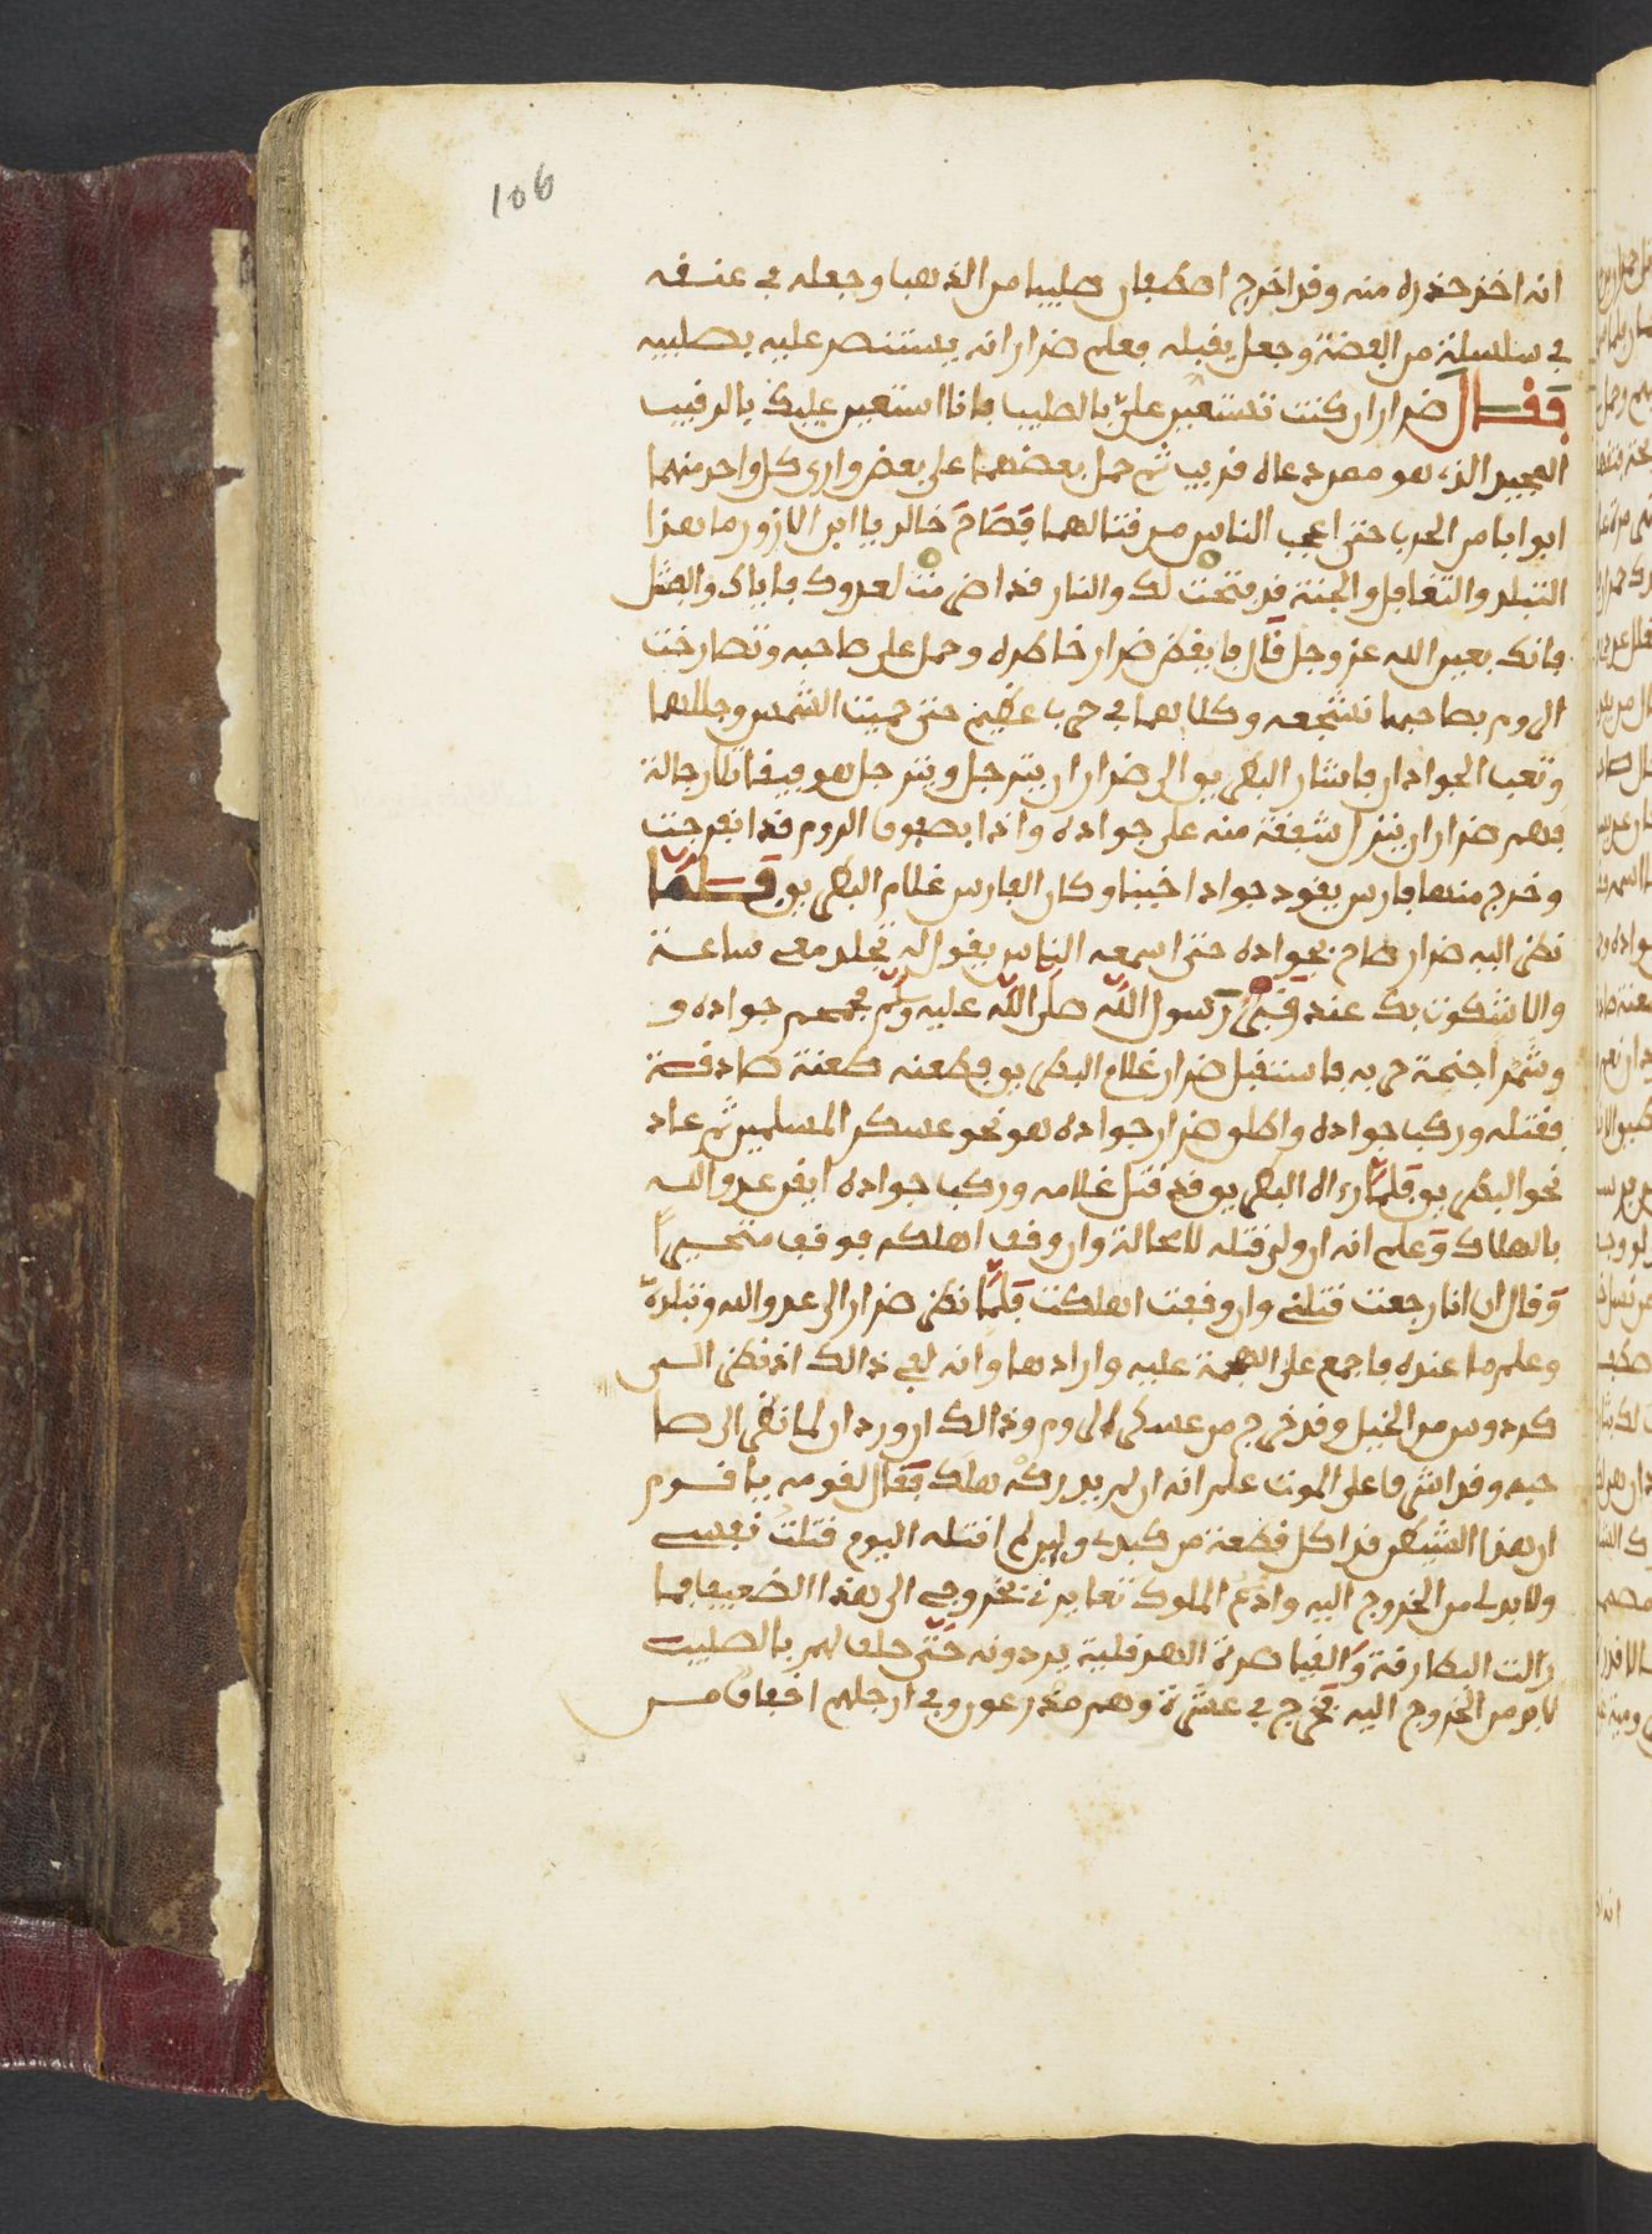 106
انه اخذ حذره منه وقد اخرج اصطفان صليبا من الذهب وجعله في عنقه
في سلسلة من الفضة وجعل يقبله فعلم ضرار انه يستنصر عليه بصليبه
فقال ضرار ان كنت تستعين علي بالصليب فانا استعين عليك بالرقيب
المجيب الذي هو ممن دعاه قريب ثم حمل بعضهما على بعض واري كل واحد منهما
ابوابا من الحرب حتى اعجب الناس من قتالهما فصاح خالد يا ابن الازور ما هذا
التبلد والتغافل والجنة قد فتحت لك والنار قد اضرمت لعدوك فاياك والفشل
فانك بعين الله عز وجل قال فايقض ضرار خاطره وحمل على صاحبه وتصارخت
الروم بصاحبها تشجعه وكلاهما في حرب عظيم حتى حميت الشمس وجللهما
وتعب الجوادان فاشار البطريق الى ضرار ان يترجل ويترجل هو فيقاتلا رجالة
فهم ضرار ان ينزل شفقة منه على جواده واذا بصفوف الروم قد انفرجت
وخرج منها فارس يقود جوادا خبيبا وكان الفارس غلام البطريق فلما
نظر اليه ضرار صاح بجواده حتى اسمعه الناس يقول له تجلد معي ساعة
والا شكوت بك عند قبر رسول الله صلى الله عليه وسلم فحمحم جواده و
وشمر اجنحة حربه فاستقبل ضرار غلام البطريق فطعنه طعنة صادقة
فقتله وركب جواده واطلق ضرار جواده هو نحو عسكر المسلمين ثم عاد
نحو البطريق فلما رءاه البطريق قد قتل غلامه وركب جواده ايقن عدو الله
بالهلاك وعلم انه ان ولى قتله لا محالة وان وقف اهلكه فوقف متحيرا
وقال ان انا رجعت قتلني وان وقفت اهلكت فلما نظر ضرار الى عدو الله وتبلده
وعلم ما عنده فاجمع على الهجمة عليه وارادها وانه لفي ذالك اذ نظر الى
كردوس من الخيل وقد خرج من عسكر الروم وذالك ان وردان لما نظر الى صا
حبه وقد اشرف على الموت علم انه ان لم يدركه هلك فقال لقومه يا قوم
ان هذا الشيطان قد اكل قطعة من كبدي ولين لم اقتله اليوم قتلت نفسي
ولا بد لي من الخروج اليه وادع الملوك تعايرني بخروجي الى هذا الضعيف فما
زالت البطارقة والقياصرة الهرقلية يردونه حتى حلف لهم بالصليب
لا بد من الخروج اليه فخرج في عشرة وهم مدرعون وفي ارجلهم اخفاف من